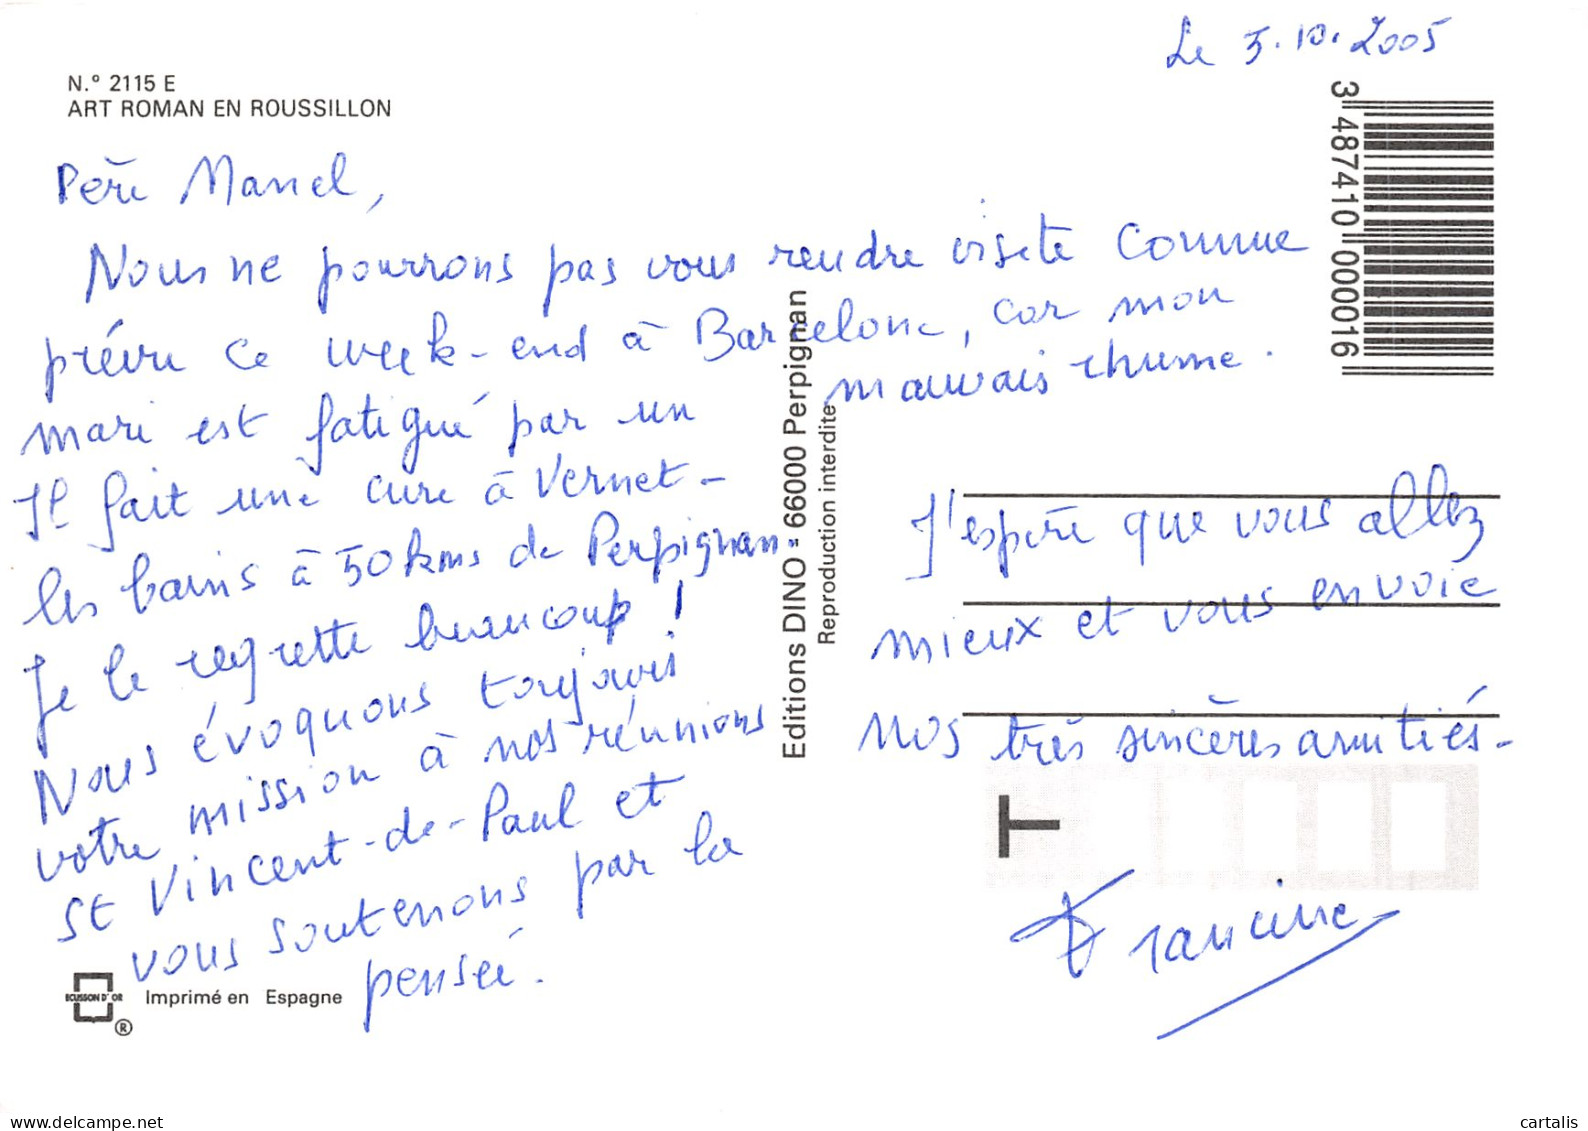 Le 5.10.2005
N.º 2115 E
ART ROMAN EN ROUSSILLON
3 487410 000016
Père Manel,
Nous ne pourrons pas vous rendre visite comme
prévu ce week-end à Barcelone, car mon
mari est fatigué par un mauvais rhume.
Il fait une cure à Vernet-
les bains à 50 kms de Perpignan.
Je le regrette beaucoup !
Nous évoquons toujours
votre mission à nos réunions
St Vincent-de-Paul et
vous soutenons par la
pensée.
Editions DINO - 66000 Perpignan
Reproduction interdite
J'espère que vous allez
mieux et vous envoie
nos très sincères amitiés -
T
Francine
ECUSSON D'OR
®
Imprimé en Espagne
delcampe.net
cartalis